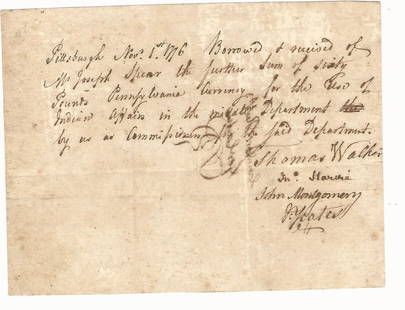 Pittsburgh Novr. 1st. 1776 Borrowed & received of
Mr Joseph Spear the further Sum of Sixty
Pounds Pennsylvania Currency for the Use of
Indian Affairs in the middle Department
by us as Commissioners for the said Department.
Thomas Walker
Jno. Harvie
John Montgomery
J. Yeates